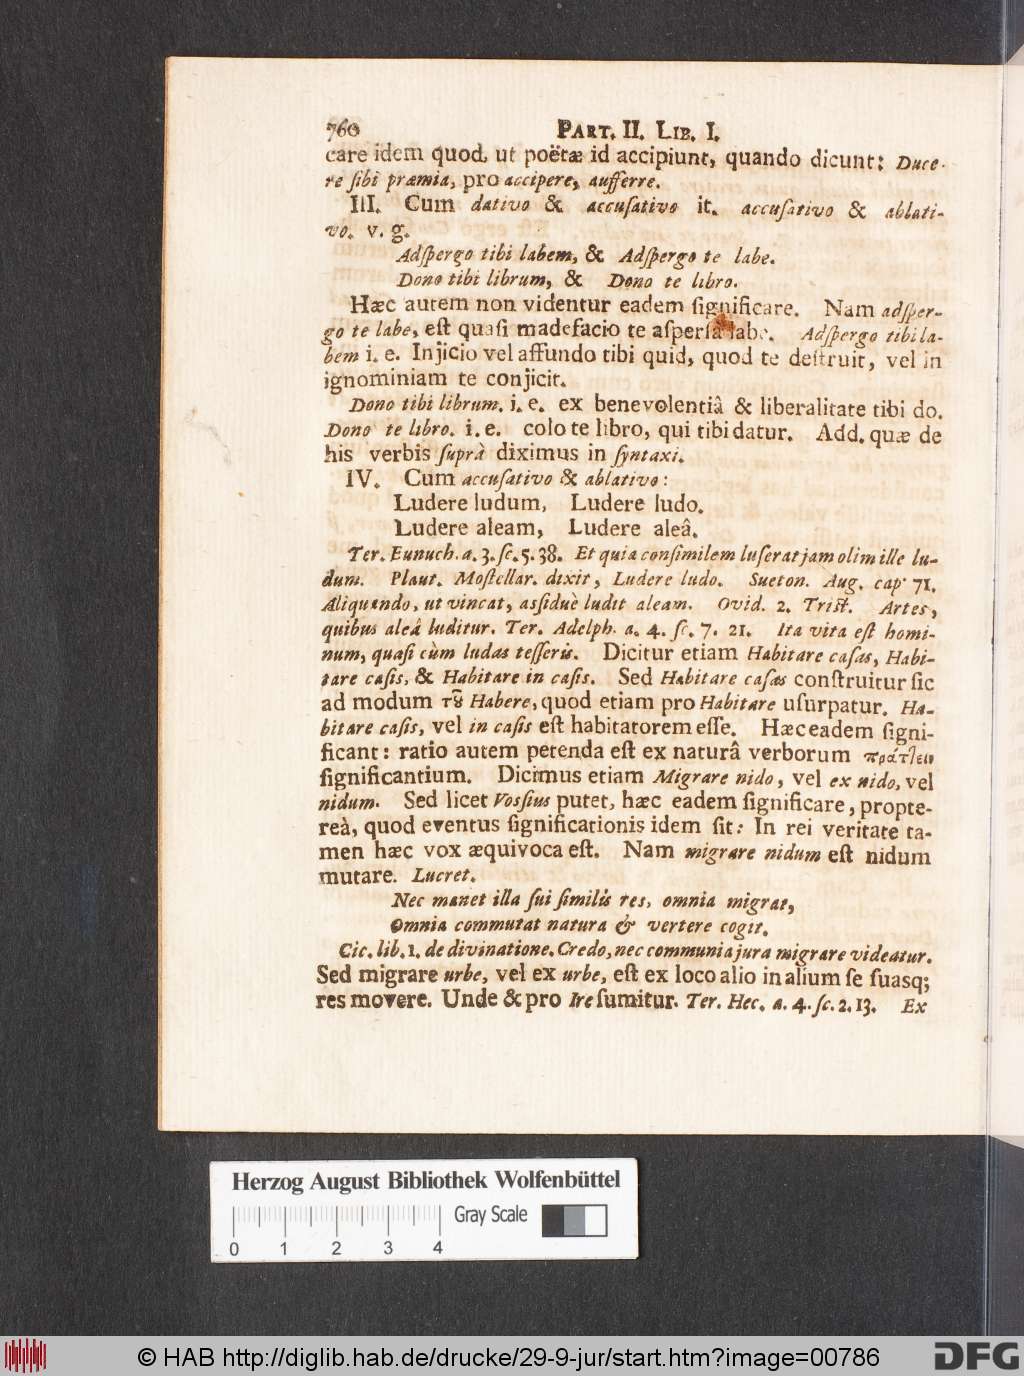 760 PART. II. LIB. I.
care idem quod, ut poëtæ id accipiunt, quando dicunt: Duce-
re ſibi præmia, pro accipere, aufferre.
III. Cum dativo & accuſativo it. accuſativo & ablati-
vo. v. g.
Adſpergo tibi labem, & Adſpergo te labe.
Dono tibi librum, & Dono te libro.
Hæc autem non videntur eadem ſignificare. Nam adſper-
go te labe, eſt quaſi madefacio te aſperſa labe. Adſpergo tibi la-
bem i. e. Injicio vel affundo tibi quid, quod te deſtruit, vel in
ignominiam te conjicit.
Dono tibi librum. i. e. ex benevolentiâ & liberalitate tibi do.
Dono te libro. i. e. colo te libro, qui tibi datur. Add. quæ de
his verbis ſuprà diximus in ſyntaxi.
IV. Cum accuſativo & ablativo:
Ludere ludum, Ludere ludo.
Ludere aleam, Ludere aleâ.
Ter. Eunuch. a. 3. ſc. 5. 38. Et quia conſimilem luſerat jam olim ille lu-
dum. Plaut. Moſtellar. dixit, Ludere ludo. Sueton. Aug. cap. 71.
Aliquando, ut vincat, aſſiduè ludit aleam. Ovid. 2. Triſt. Artes,
quibus aleâ luditur. Ter. Adelph. a. 4. ſc. 7. 21. Ita vita eſt homi-
num, quaſi cùm ludas teſſeris. Dicitur etiam Habitare caſas, Habi-
tare caſis, & Habitare in caſis. Sed Habitare caſas conſtruitur ſic
ad modum τȣ͂ Habere, quod etiam pro Habitare uſurpatur. Ha-
bitare caſis, vel in caſis eſt habitatorem eſſe. Hæc eadem ſigni-
ficant: ratio autem petenda eſt ex naturâ verborum πράτλειν
ſignificantium. Dicimus etiam Migrare nido, vel ex nido, vel
nidum. Sed licet Voſſius putet, hæc eadem ſignificare, propte-
reà, quod eventus ſignificationis idem ſit: In rei veritate ta-
men hæc vox æquivoca eſt. Nam migrare nidum eſt nidum
mutare. Lucret.
Nec manet illa ſui ſimilis res, omnia migrat,
Omnia commutat natura & vertere cogit.
Cic. lib. 1. de divinatione. Credo, nec communia jura migrare videatur.
Sed migrare urbe, vel ex urbe, eſt ex loco alio in alium ſe ſuasq;
res movere. Unde & pro Ire ſumitur. Ter. Hec. a. 4. ſc. 2. 13. Ex
Herzog August Bibliothek Wolfenbüttel
Gray Scale
0 1 2 3 4
© HAB http://diglib.hab.de/drucke/29-9-jur/start.htm?image=00786
DFG